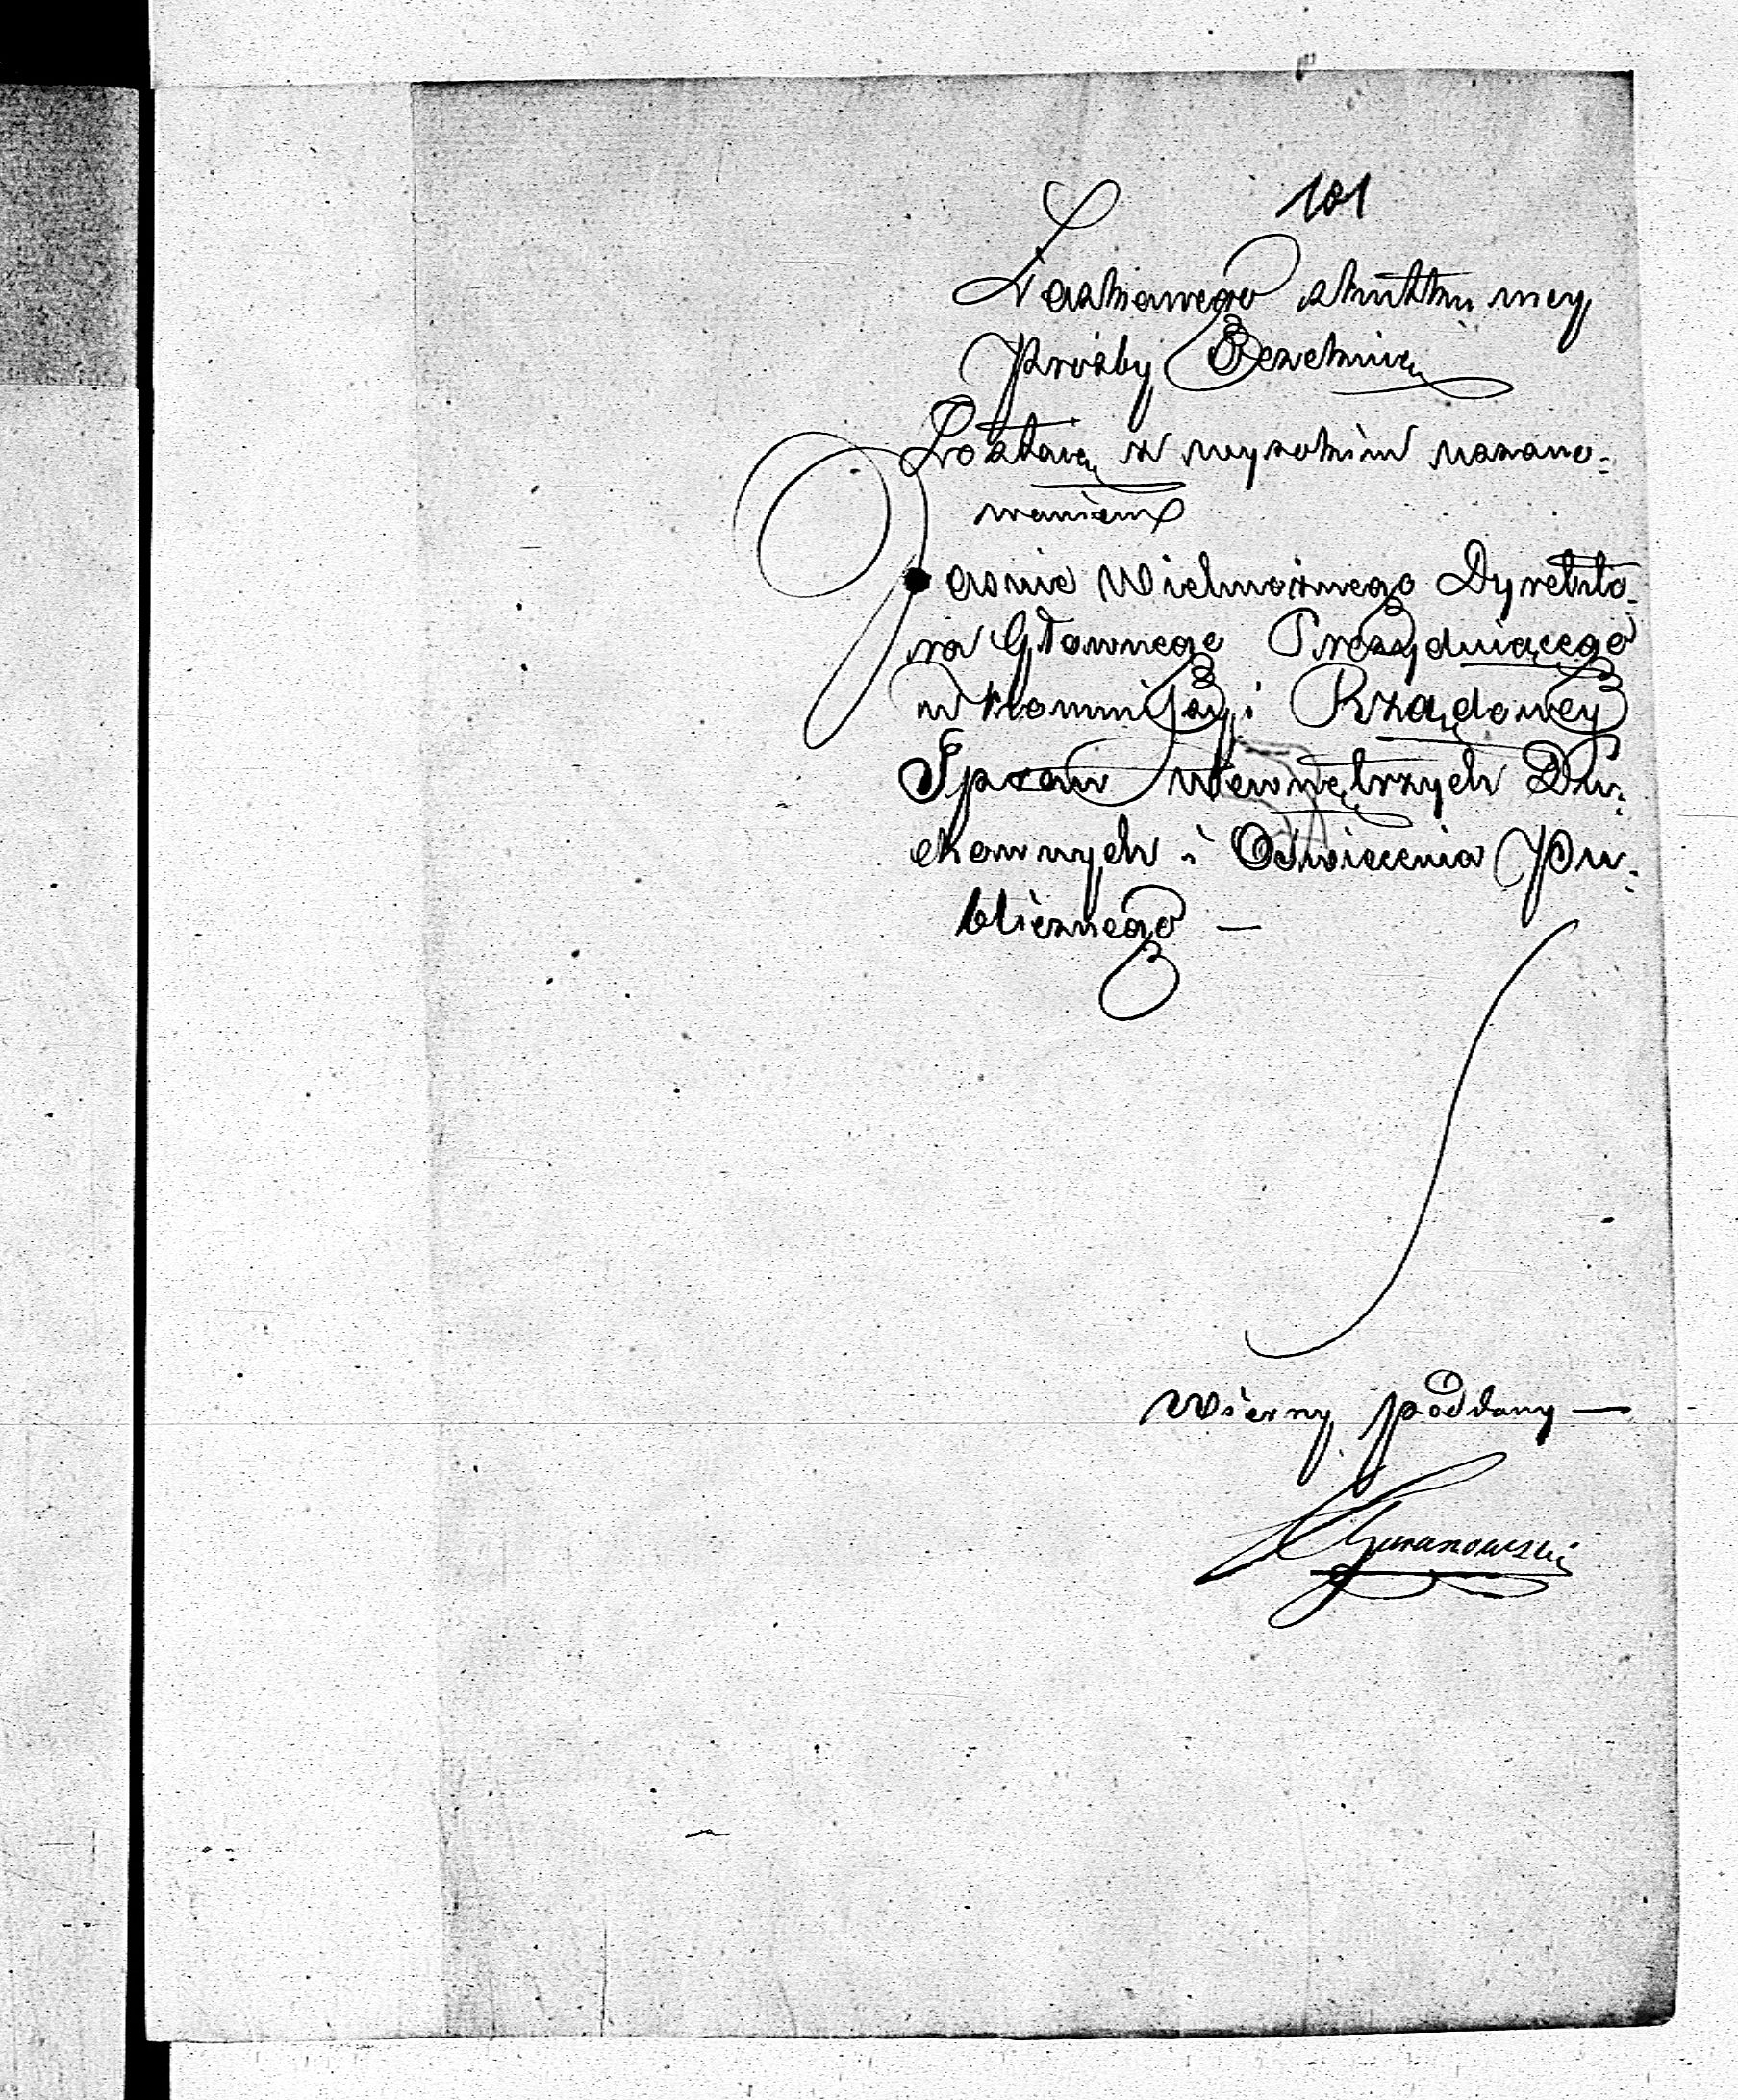 101
Łaskawego skutku mey
Prośby Oczekuiąc
Zostaię z wysokim uszano-
waniem
Jasnie Wielmożnego Dyrekto-
ra Głównego Prezyduiącego
w Kommissyi Rządowey
Spraw Wewnętrzych Du-
chownych i Oświecenia Pu-
blicznego —
Wierny poddany —